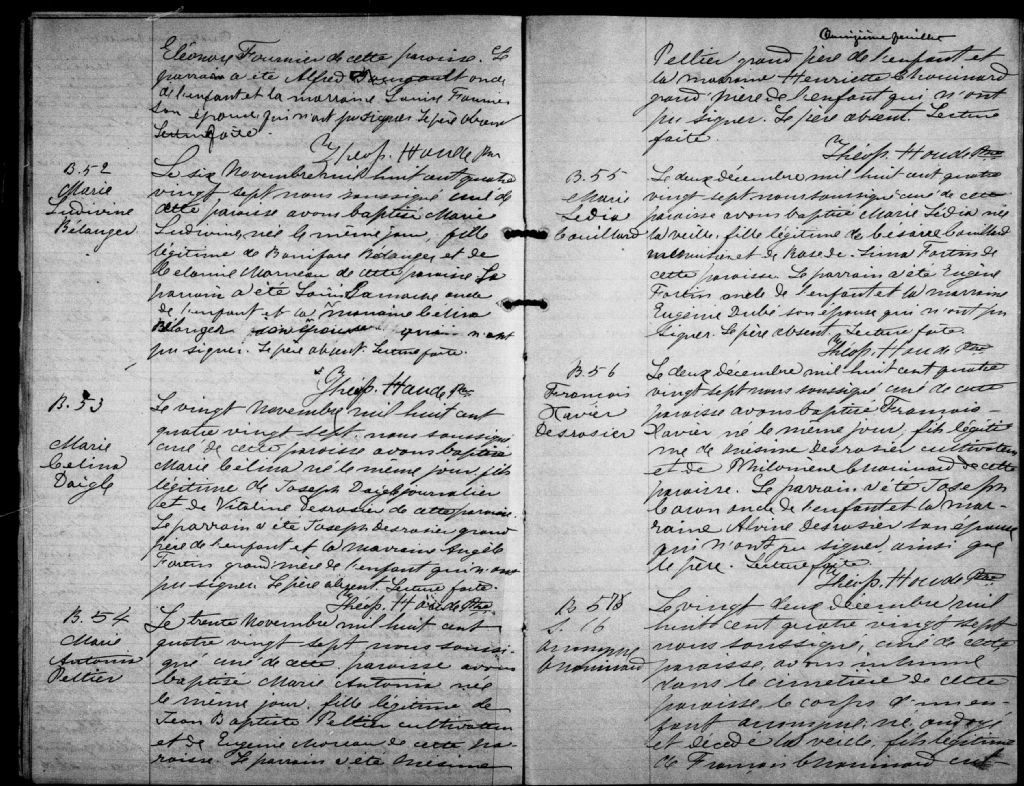 Eléonore Fournier de cette paroisse. Le
parrain a été Alfred oncle
de l'enfant et la marraine Louise Fournier
son épouse qui n'ont pu signer. Le père absent
Lecture faite.
Théop. Houde Ptre
B. 52
Marie
Ludivine
Bélanger
Le six Novembre mil huit cent quatre
vingt sept nous soussigné curé de
cette paroisse avons baptisé Marie
Ludivine, née le même jour, fille
légitime de Boniface Bélanger et de
Mélanie Morneau de cette paroisse. Le
parrain a été Louis Gamache oncle
de l'enfant et la marraine Célina
Bélanger son épouse qui n'ont
pu signer. Le père absent. Lecture faite.
Théop. Houde Ptre
B. 53
Marie
Celina
Daigle
Le vingt novembre mil huit cent
quatre vingt sept, nous soussigné
curé de cette paroisse avons baptisé
Marie Célina né le même jour, fils
légitime de Joseph Daigle journalier
et de Vitaline Desrosier de cette paroisse.
Le parrain a été Joseph Desrosier grand
père de l'enfant et la marraine Angèle
Fortin grand'mère de l'enfant qui n'ont
pu signer. Le père absent. Lecture faite.
Théop. Houde Ptre
B. 54
Marie
Antonia
Peltier
Le trente Novembre mil huit cent
quatre vingt sept, nous soussi-
gné curé de cette paroisse avons
baptisé Marie Antonia née
le même jour, fille légitime de
Jean Baptiste Peltier cultivateur
et de Eugénie Moreau de cette pa-
roisse. Le parrain a été Onésime
Quinzième feuillet
Peltier grand père de l'enfant et
la marraine Henriette Chouinard
grand'mère de l'enfant qui n'ont
pu signer. Le père absent. Lecture
faite.
Théop. Houde Ptre
B. 55
Marie
Lédia
Couillard
Le deux décembre mil huit cent quatre
vingt sept nous soussigné curé de cette
paroisse avons baptisé Marie Lédia née
la veille, fille légitime de Césarée Couillard
menuisier et de Rose de-Lima Fortin de
cette paroisse. Le parrain a été Eugène
Fortin oncle de l'enfant et la marraine
Eugénie Dubé son épouse qui n'ont pu
signer. Le père absent. Lecture faite.
Théop. Houde Ptre
B. 56
François
Xavier
Desrosier
Le deux décembre mil huit cent quatre
vingt sept nous soussigné curé de cette
paroisse avons baptisé François-
Xavier né le même jour, fils légiti-
me de Onésime Desrosier cultivateur
et de Philomène Chouinard de cette
paroisse. Le parrain a été Joseph
Caron oncle de l'enfant et la mar-
raine Alvine Desrosier son épouse
qui n'ont pu signer ainsi que
le père. Lecture faite
Théop. Houde Ptre
S. 16
anonyme
Chouinard
Le vingt deux décembre mil
huit cent quatre vingt sept
nous soussigné, curé de cette
paroisse, avons inhumé
dans le cimetière de cette
paroisse le corps d'un en-
fant anonyme, né, ondoyé
et décédé la veille, fils légitime
de François Chouinard cult-